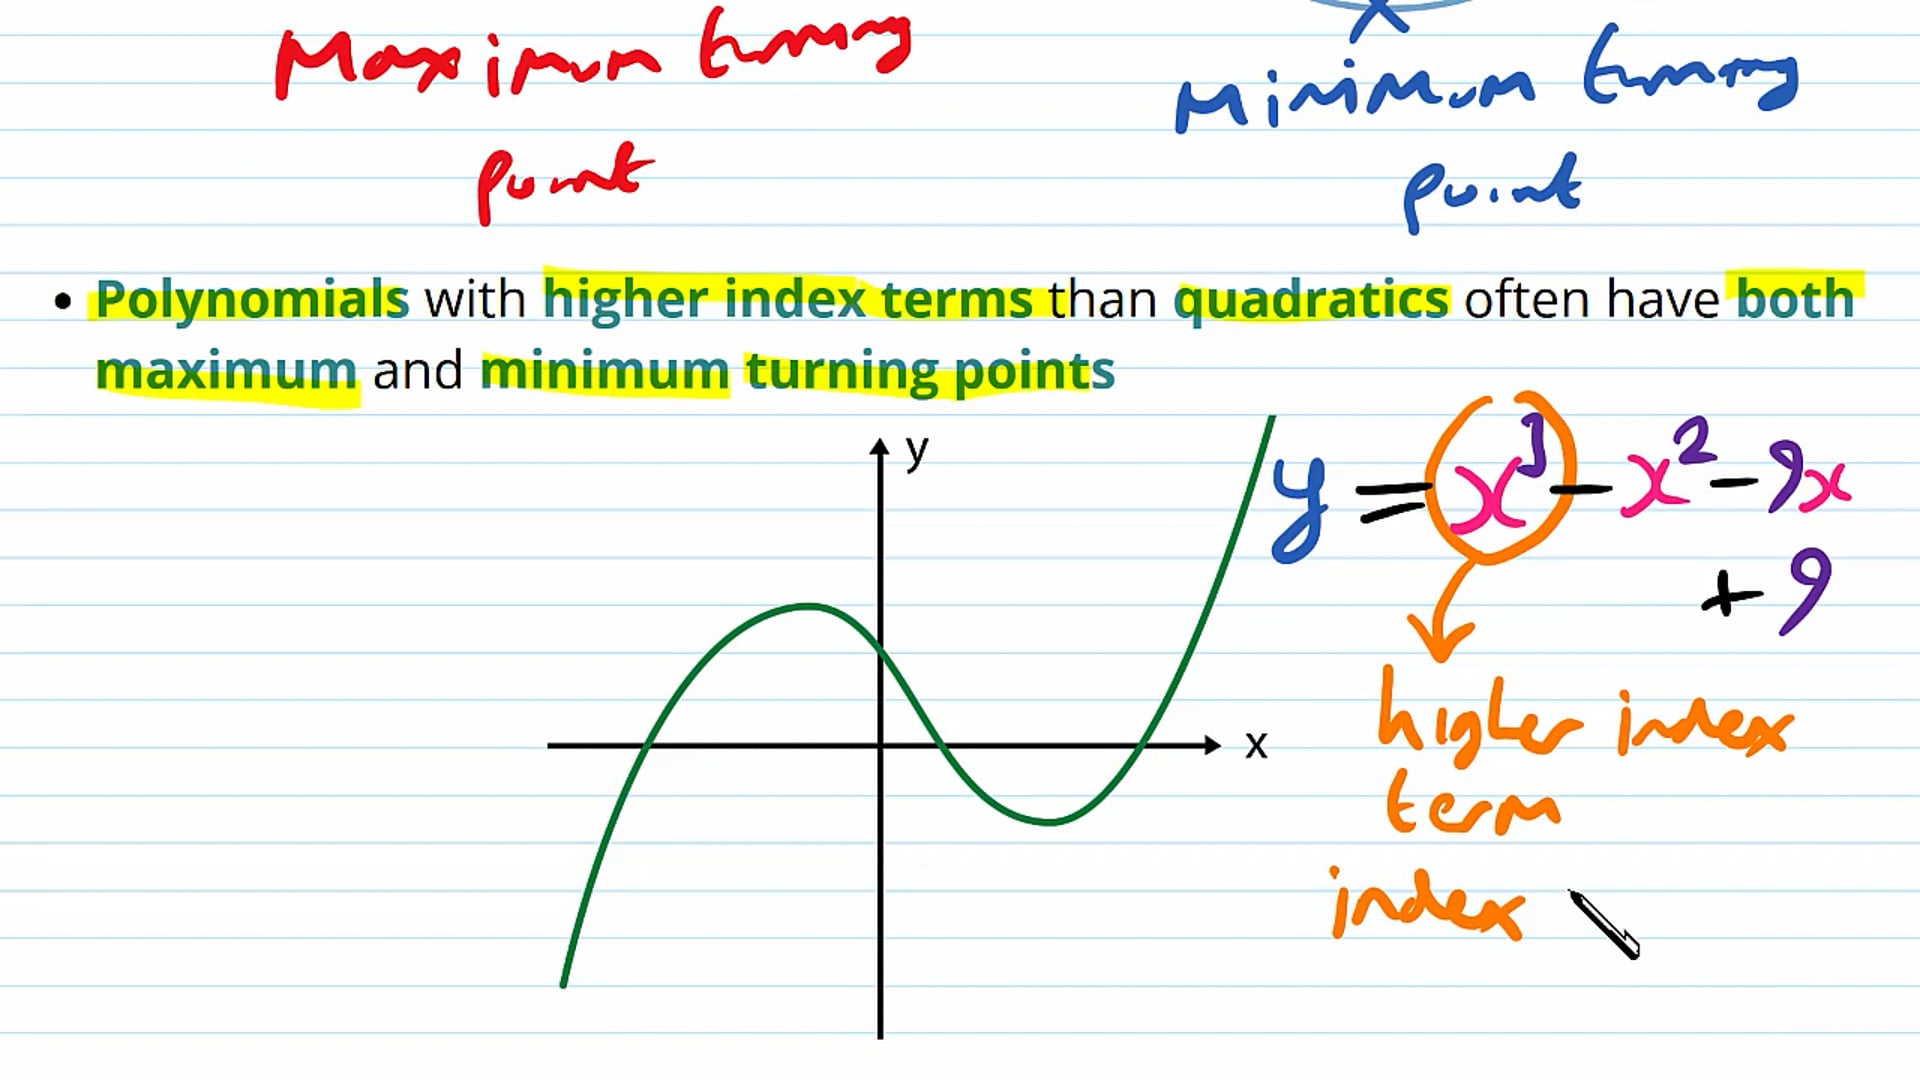 Maximum turning
point
Minimum turning
point
• Polynomials with higher index terms than quadratics often have both
maximum and minimum turning points
y
y = x³ - x² - 9x
+ 9
x
higher index
term
index